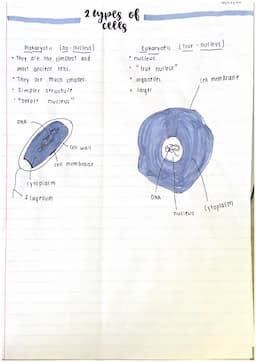 2 types of
cells
Prokaryotic (no-nucleus)
• They are the simplest and
most ancient cells.
• They are much smaller.
• Simpler structure
• "before nucleus"
DNA
cell wall
cell membrane
cytoplasm
flagellum
Eukaryotic (true-nucleus)
• nucleus
• "true nucleus"
• organelles
• larger
cell membrane
DNA
nucleus
cytoplasm